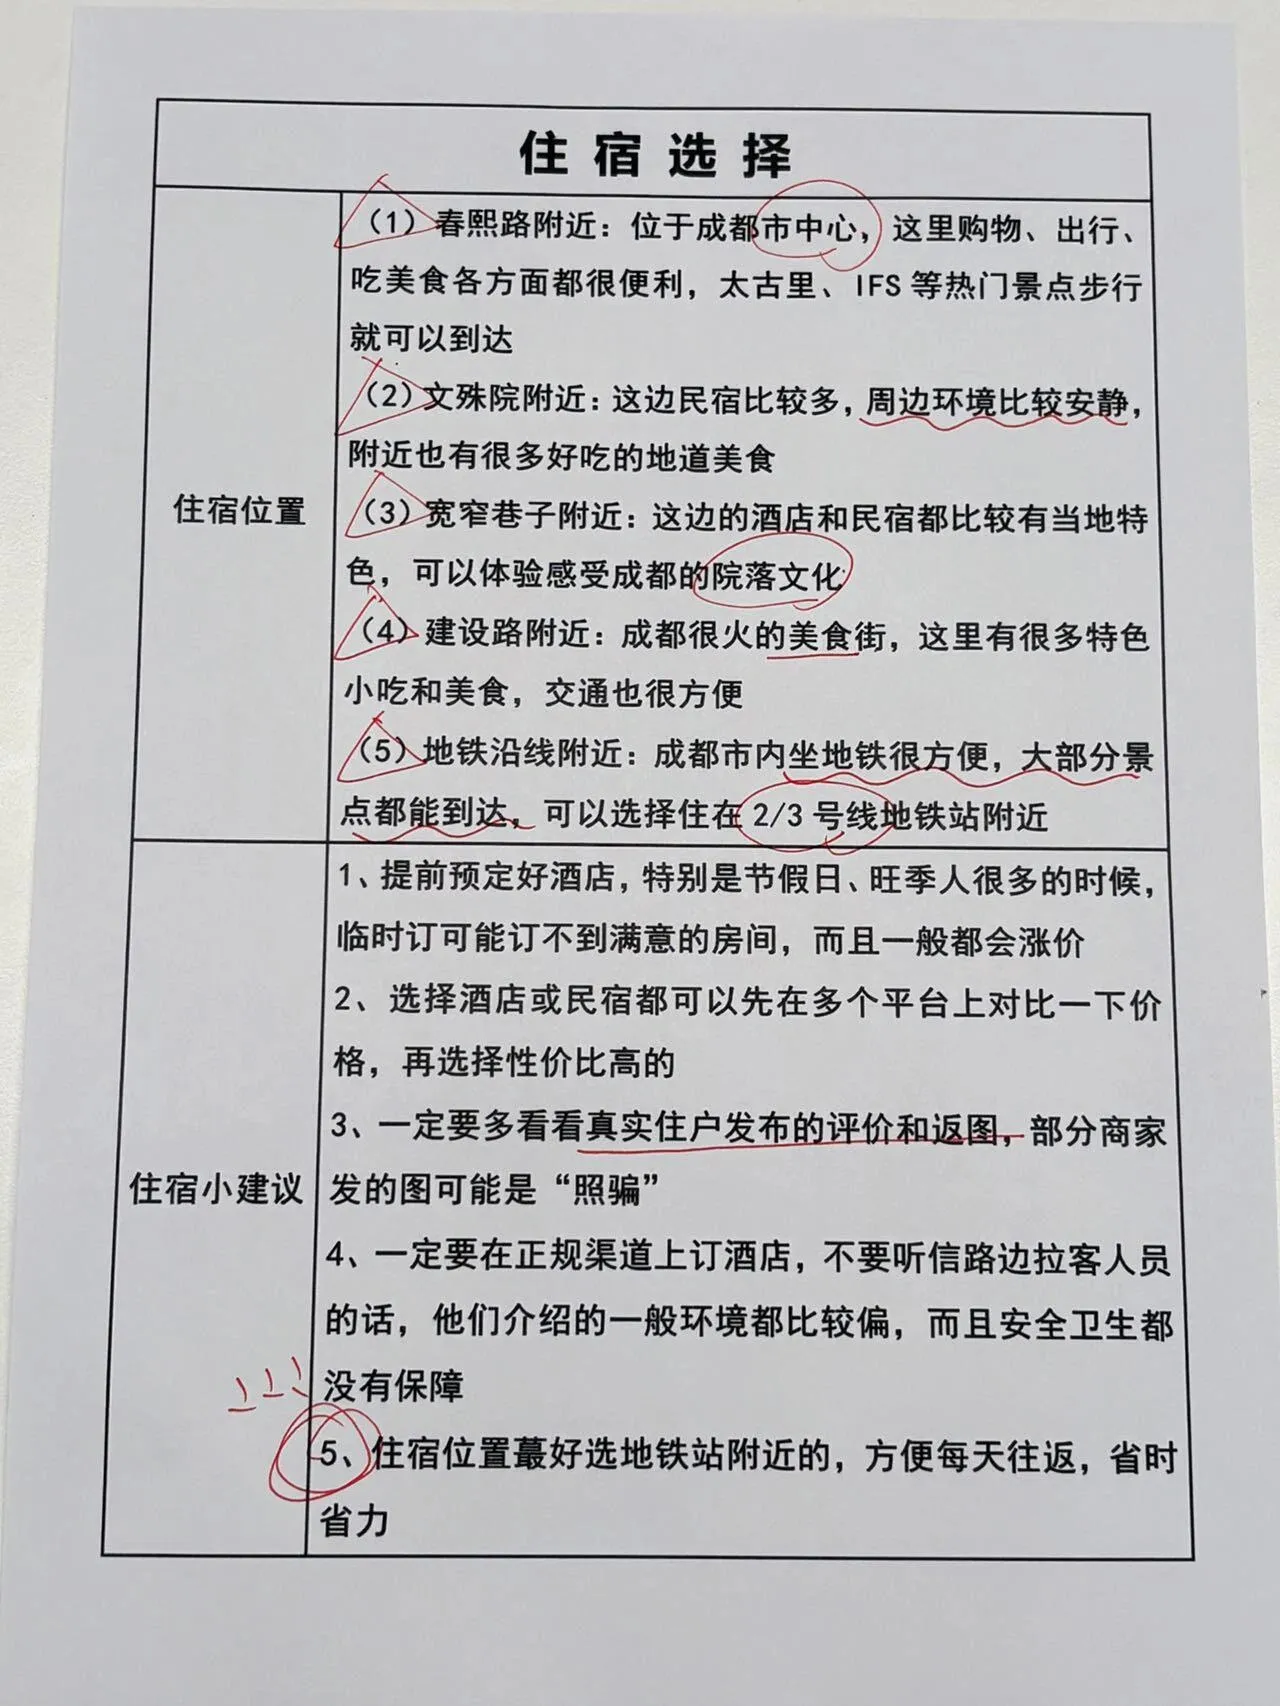 住宿选择
(1)春熙路附近：位于成都市中心，这里购物、出行、
吃美食各方面都很便利，太古里、IFS等热门景点步行
就可以到达
(2)文殊院附近：这边民宿比较多，周边环境比较安静，
附近也有很多好吃的地道美食
住宿位置
(3)宽窄巷子附近：这边的酒店和民宿都比较有当地特
色，可以体验感受成都的院落文化
(4)建设路附近：成都很火的美食街，这里有很多特色
小吃和美食，交通也很方便
(5)地铁沿线附近：成都市内坐地铁很方便，大部分景
点都能到达，可以选择住在2/3号线地铁站附近
1、提前预定好酒店，特别是节假日、旺季人很多的时候，
临时订可能订不到满意的房间，而且一般都会涨价
2、选择酒店或民宿都可以先在多个平台上对比一下价
格，再选择性价比高的
3、一定要多看看真实住户发布的评价和返图，部分商家
发的图可能是“照骗”
住宿小建议
4、一定要在正规渠道上订酒店，不要听信路边拉客人员
的话，他们介绍的一般环境都比较偏，而且安全卫生都
没有保障
5、住宿位置蕞好选地铁站附近的，方便每天往返，省时
省力